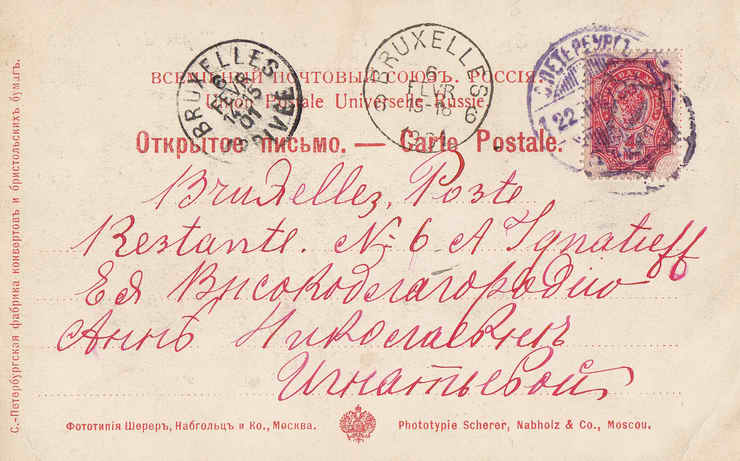 ВСЕМІРНЫЙ ПОЧТОВЫЙ СОЮЗЪ. РОССІЯ.
Union Postale Universelle. Russie.
Открытое письмо. — Carte Postale.
BRUXELLES
6
FEVR
15-16
1901
6 6
BRUXELLES
6
FEVR
1901
ARRIVÉE
С.ПЕТЕРБУРГЪ
22
Bruxelles, Poste
Restante. № 6 A Ignatieff
Ея Высокоблагородію
Аннѣ Николаевнѣ
Игнатьевой
С.-Петербургская фабрика конвертовъ и бристольскихъ бумагъ.
Фототипія Шереръ, Набгольцъ и Ко., Москва.
Phototypie Scherer, Nabholz & Co., Moscou.